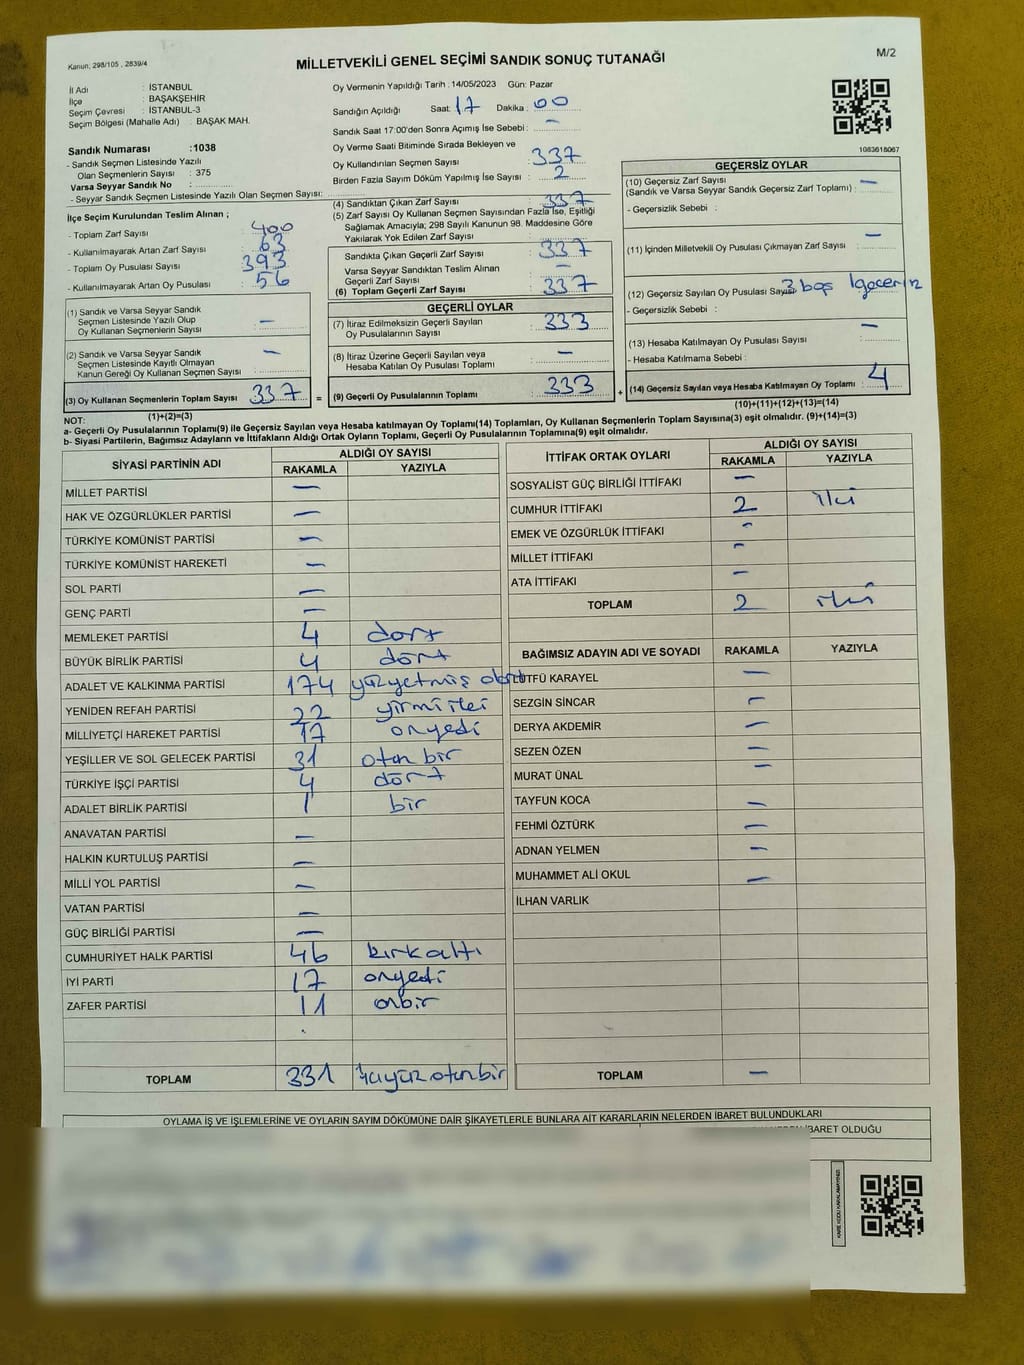 Kanun, 298/105 , 2839/4
MİLLETVEKİLİ GENEL SEÇİMİ SANDIK SONUÇ TUTANAĞI
M/2
İl Adı : İSTANBUL
İlçe : BAŞAKŞEHİR
Seçim Çevresi : İSTANBUL-3
Seçim Bölgesi (Mahalle Adı) : BAŞAK MAH.
Sandık Numarası :1038
- Sandık Seçmen Listesinde Yazılı
Olan Seçmenlerin Sayısı : 375
Varsa Seyyar Sandık No :
- Seyyar Sandık Seçmen Listesinde Yazılı Olan Seçmen Sayısı:
İlçe Seçim Kurulundan Teslim Alınan ;
- Toplam Zarf Sayısı 400
- Kullanılmayarak Artan Zarf Sayısı 63
- Toplam Oy Pusulası Sayısı 393
- Kullanılmayarak Artan Oy Pusulası 56
(1) Sandık ve Varsa Seyyar Sandık
Seçmen Listesinde Yazılı Olup
Oy Kullanan Seçmenlerin Sayısı : —
(2) Sandık ve Varsa Seyyar Sandık
Seçmen Listesinde Kayıtlı Olmayan
Kanun Gereği Oy Kullanan Seçmen Sayısı : —
(3) Oy Kullanan Seçmenlerin Toplam Sayısı 337 =
(1)+(2)=(3)
Oy Vermenin Yapıldığı Tarih : 14/05/2023 Gün: Pazar
Sandığın Açıldığı Saat: 17 Dakika : 00
Sandık Saat 17:00'den Sonra Açımış İse Sebebi : —
Oy Verme Saati Bitiminde Sırada Bekleyen ve
Oy Kullandırılan Seçmen Sayısı : 337
Birden Fazla Sayım Döküm Yapılmış İse Sayısı : 2
(4) Sandıktan Çıkan Zarf Sayısı : 337
(5) Zarf Sayısı Oy Kullanan Seçmen Sayısından Fazla İse, Eşitliği
Sağlamak Amacıyla; 298 Sayılı Kanunun 98. Maddesine Göre
Yakılarak Yok Edilen Zarf Sayısı :
Sandıkta Çıkan Geçerli Zarf Sayısı : 337
Varsa Seyyar Sandıktan Teslim Alınan
Geçerli Zarf Sayısı : —
(6) Toplam Geçerli Zarf Sayısı : 337
GEÇERLİ OYLAR
(7) İtiraz Edilmeksizin Geçerli Sayılan
Oy Pusulalarının Sayısı : 333
(8) İtiraz Üzerine Geçerli Sayılan veya
Hesaba Katılan Oy Pusulası Toplamı : —
(9) Geçerli Oy Pusulalarının Toplamı : 333 +
1083618067
GEÇERSİZ OYLAR
(10) Geçersiz Zarf Sayısı
(Sandık ve Varsa Seyyar Sandık Geçersiz Zarf Toplamı) : —
- Geçersizlik Sebebi :
(11) İçinden Milletvekil Oy Pusulası Çıkmayan Zarf Sayısı : —
(12) Geçersiz Sayılan Oy Pusulası Sayısı 3 boş 1geçersiz
- Geçersizlik Sebebi :
(13) Hesaba Katılmayan Oy Pusulası Sayısı : —
- Hesaba Katılmama Sebebi :
(14) Geçersiz Sayılan veya Hesaba Katılmayan Oy Toplamı : 4
(10)+(11)+(12)+(13)=(14)
NOT:
a- Geçerli Oy Pusulasının Toplamı(9) ile Geçersiz Sayılan veya Hesaba katılmayan Oy Toplamı(14) Toplamları, Oy Kullanan Seçmenlerin Toplam Sayısına(3) eşit olmalıdır. (9)+(14)=(3)
b- Siyasi Partilerin, Bağımsız Adayların ve İttifakların Aldığı Ortak Oyların Toplamı, Geçerli Oy Pusulalarının Toplamına(9) eşit olmalıdır.
SİYASİ PARTİNİN ADI ALDIĞI OY SAYISI
RAKAMLA YAZIYLA
MİLLET PARTİSİ —
HAK VE ÖZGÜRLÜKLER PARTİSİ —
TÜRKİYE KOMÜNİST PARTİSİ —
TÜRKİYE KOMÜNİST HAREKETİ —
SOL PARTİ —
GENÇ PARTİ —
MEMLEKET PARTİSİ 4 dört
BÜYÜK BİRLİK PARTİSİ 4 dört
ADALET VE KALKINMA PARTİSİ 174 yüzyetmiş dört
YENİDEN REFAH PARTİSİ 22 yirmi iki
MİLLİYETÇİ HAREKET PARTİSİ 17 onyedi
YEŞİLLER VE SOL GELECEK PARTİSİ 31 otuz bir
TÜRKİYE İŞÇİ PARTİSİ 4 dört
ADALET BİRLİK PARTİSİ 1 bir
ANAVATAN PARTİSİ —
HALKIN KURTULUŞ PARTİSİ —
MİLLİ YOL PARTİSİ —
VATAN PARTİSİ —
GÜÇ BİRLİĞİ PARTİSİ —
CUMHURİYET HALK PARTİSİ 46 kırkaltı
İYİ PARTİ 17 onyedi
ZAFER PARTİSİ 11 onbir
TOPLAM 331 üçyüz otuz bir
İTTİFAK ORTAK OYLARI ALDIĞI OY SAYISI
RAKAMLA YAZIYLA
SOSYALİST GÜÇ BİRLİĞİ İTTİFAKI —
CUMHUR İTTİFAKI 2 iki
EMEK VE ÖZGÜRLÜK İTTİFAKI —
MİLLET İTTİFAKI —
ATA İTTİFAKI —
TOPLAM 2 iki
BAĞIMSIZ ADAYIN ADI VE SOYADI RAKAMLA YAZIYLA
LÜTFÜ KARAYEL —
SEZGİN SİNCAR —
DERYA AKDEMİR —
SEZEN ÖZEN —
MURAT ÜNAL —
TAYFUN KOCA —
FEHMİ ÖZTÜRK —
ADNAN YELMEN —
MUHAMMET ALİ OKUL —
İLHAN VARLIK
TOPLAM —
OYLAMA İŞ VE İŞLEMLERİNE VE OYLARIN SAYIM DÖKÜMÜNE DAİR ŞİKAYETLERLE BUNLARA AİT KARARLARIN NELERDEN İBARET BULUNDUKLARI
İBARET OLDUĞU
KARE KODU KARALAMAYINIZ!